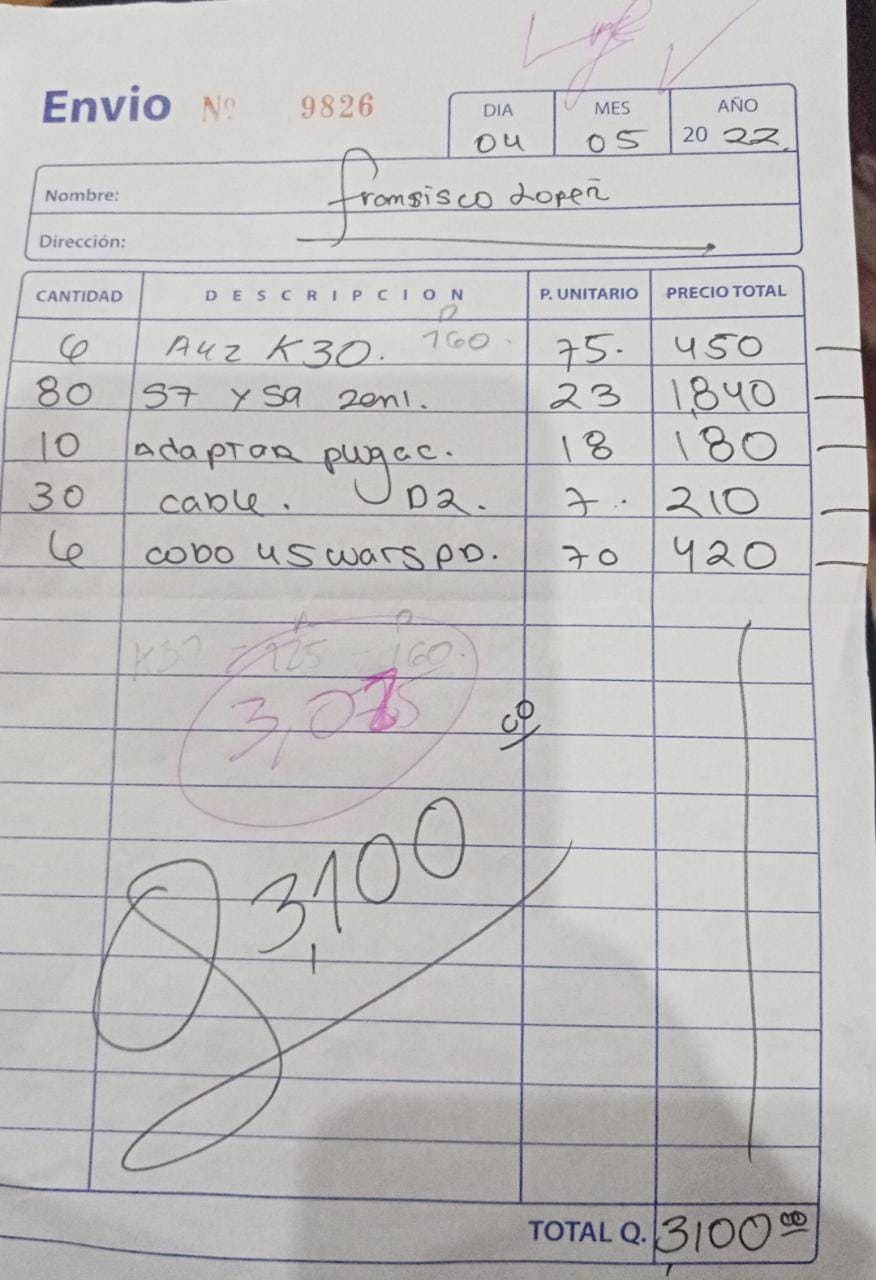 Envio Nº 9826
DIA MES AÑO
04 05 2022.
Nombre: Fransisco Lopez
Dirección:
CANTIDAD DESCRIPCION P. UNITARIO PRECIO TOTAL
P
6 Auz K30. 160. 75. 450
80 S7 y S9 20n1. 23 1,840
10 Adaptar pugac. 18 180
30 cable. D2. 7. 210
6 cobo 45 wars PD. 70 420
P
K30 - 125 - 160.
3,075
Q 3,100 00
TOTAL Q. 3,100 00